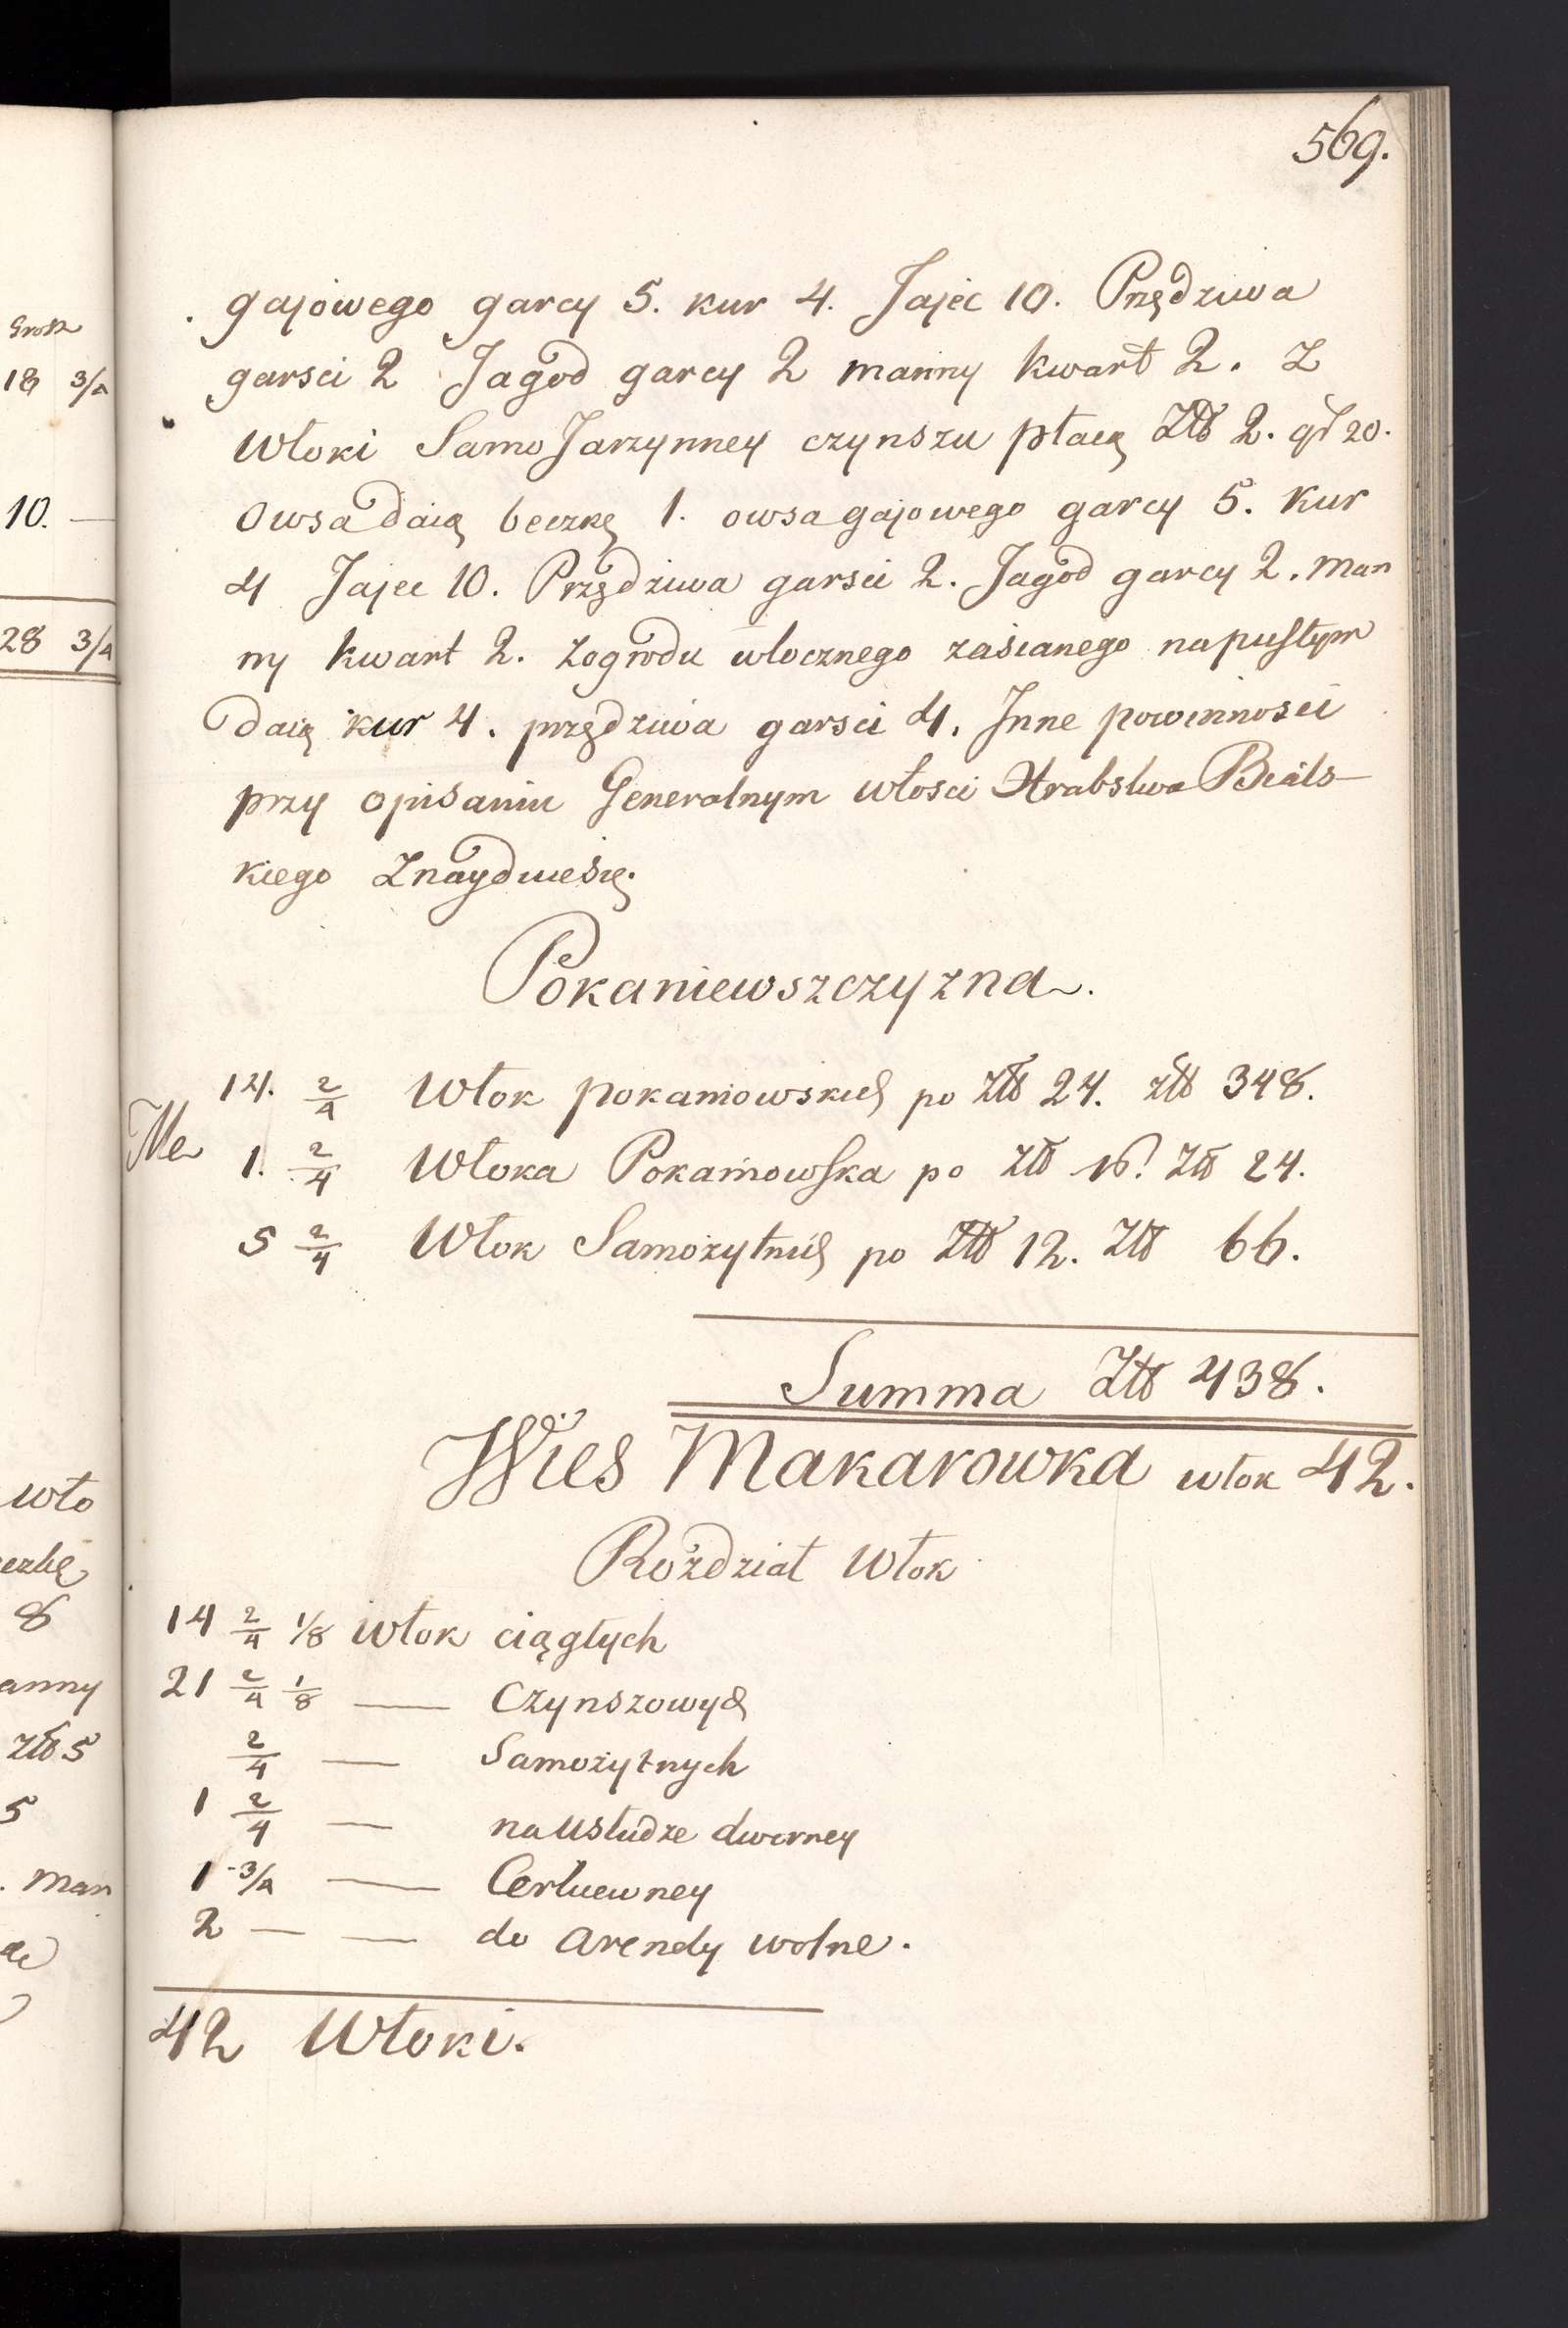 569.
gajowego garcy 5. kur 4. Jajec 10. Przędziwa
garsci 2 Jagod garcy 2 manny kwart 2. Z
Włoki Samo Jarzynney czynszu płacą Złt 2. gr 20.
Owsa daią beczkę 1. owsa gajowego garcy 5. Kur
4 Jajec 10. Przędziwa garsci 2. Jagod garcy 2. Man
ny kwart 2. Zogrodu włocznego zasianego napustym
daią kur 4. przędziwa garsci 4. Inne powinnosci
przy opisaniu Generalnym włosci Hrabstwa Bials-
kiego Znayduiesię.
Pokaniewszczyzna.
14. 2/4 Włok pokaniowskich po Złt 24. złt 348.
1. 2/4 Włoka Pokaniowska po złt 16. Złt 24.
5 2/4 Włok Samożytnich po Złt 12. Złt 66.
Summa Złt 438.
Wies Makarowka włok 42.
Rozdział Włok
14 2/4 1/8 włok ciągłych
21 2/4 1/8 — Czynszowych
2/4 — Samożytnych
1 2/4 — na usłudze dworney
1 3/4 — Cerkiewney
2 — — do arendy wolne.
42 Włoki.
18 3/4
10. —
28 3/4
wło
8
anny
złt 5
5
. Man